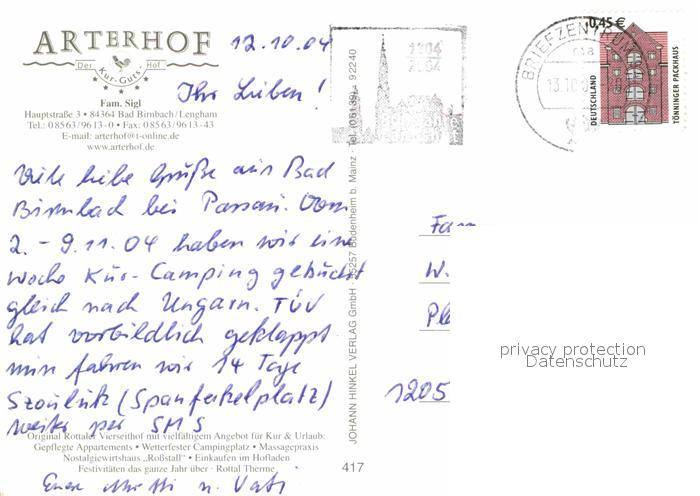 ARTERHOF
Der Hof
Kur-Guts
Fam. Sigl
Hauptstraße 3 • 84364 Bad Birnbach/Lengham
Tel.: 08563/9613-0 • Fax: 08563/9613-43
E-mail: arterhof@t-online.de
www.arterhof.de
12.10.04
Ihr Lieben!
Viele liebe Grüße aus Bad
Birnbach bei Passau. Vom
2. - 9.11.04 haben wir eine
Woche Kur-Camping gebucht
gleich nach Ungarn. TÜV
hat vorbildlich geklappt
nun fahren wir 14 Tage
(Spanferkelplatz)
weiter per SMS
Original Rottaler Vierseithof mit vielfältigem Angebot für Kur & Urlaub:
Gepflegte Appartements • Wetterfester Campingplatz • Massagepraxis
Nostalgiewirtshaus „Roßstall“ • Einkaufen im Hofladen
Festivitäten das ganze Jahr über · Rottal Therme
Eure u. Vati
JOHANN HINKEL VERLAG GmbH · 55257 Bodenheim b. Mainz · Tel. (06139) 92240
417
1204
2004
BRIEFZENTRUM
13.10.0
0,45 €
DEUTSCHLAND
TÖNNINGER PACKHAUS
Fam
W.
Ple
1205
privacy protection
Datenschutz